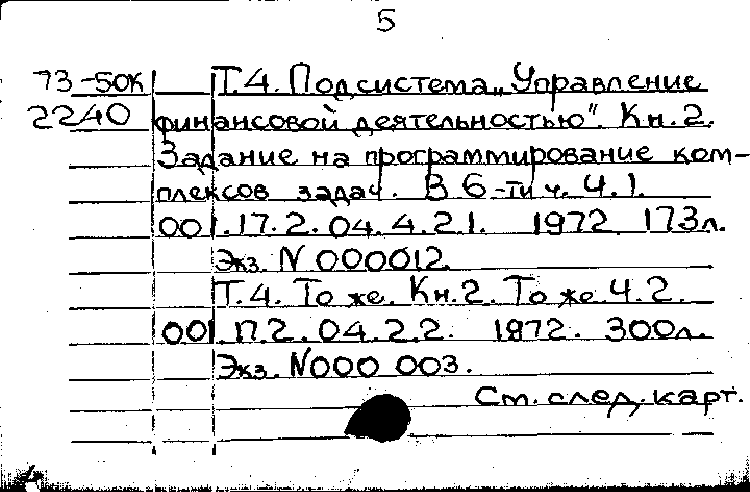 5
73-50К Т.4. Подсистема „Управление
2240 финансовой деятельностью". Кн.2.
Задание на программирование ком-
плексов задач. В 6-ти ч. Ч.1.
001.17.2.04.4.21. 1972 173л.
Экз. N 000012.
Т.4. То же. Кн.2. То же. Ч.2.
001.17.2.04.2.2. 1972. 300л.
Экз. N000 003.
См. след. карт.